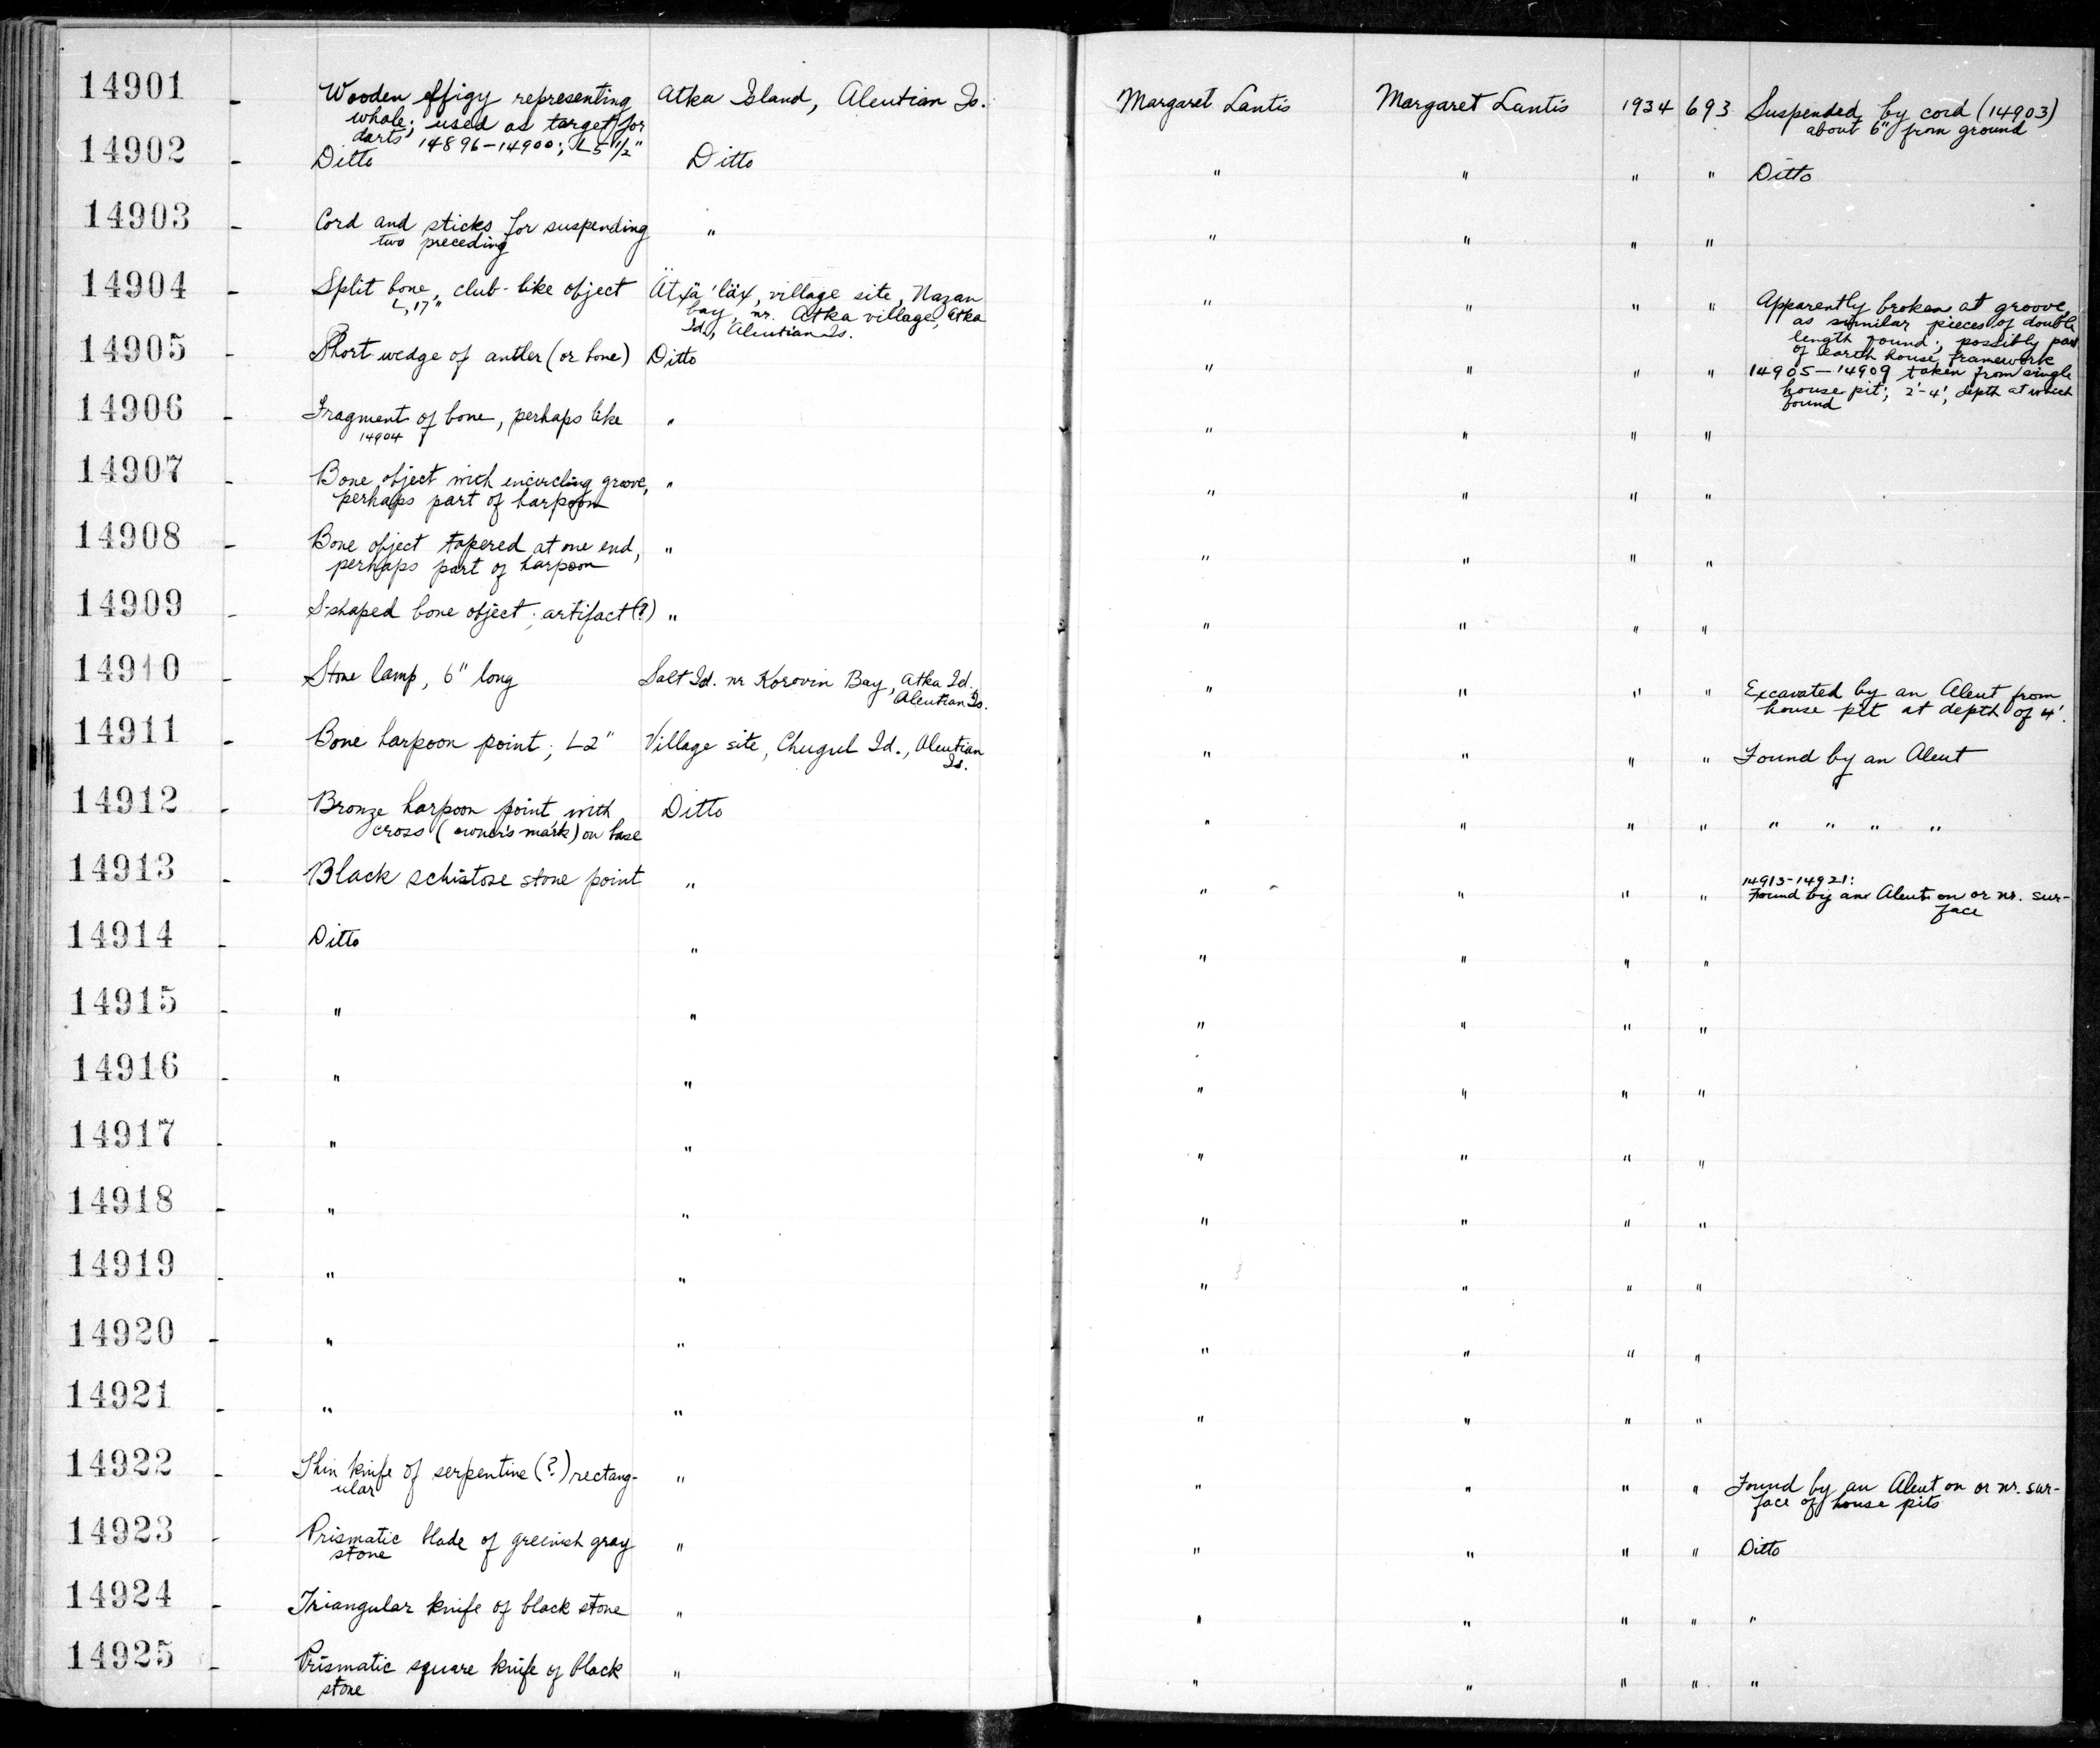 14901 - Wooden effigy representing Atka Island, Aleutian Is. Margaret Lantis Margaret Lantis 1934 693 Suspended by cord (14903)
whale; used as target for about 6" from ground
darts 14896-14900; L 5 1/2"
14902 - Ditto Ditto " " " " Ditto
14903 - Cord and sticks for suspending " " " " "
two preceding
14904 - Split bone, club-like object Ätxä'läx, village site, Nazan " " " " Apparently broken at groove,
L, 17" bay, nr. Atka village, Atka as similar pieces of double
Id., Aleutian Is. length found; possibly part
of earth house framework
14905 - Short wedge of antler (or bone) Ditto " " " " 14905-14909 taken from single
house pit; 2'-4', depth at which
found
14906 - Fragment of bone, perhaps like " " " " "
14904
14907 - Bone object with encircling groove, " " " " "
perhaps part of harpoon
14908 - Bone object tapered at one end, " " " " "
perhaps part of harpoon
14909 - S-shaped bone object; artifact (?) " " " " "
14910 - Stone lamp, 6" long Salt Id. nr Korovin Bay, Atka Id. " " " " Excavated by an Aleut from
Aleutian Is. house pit at depth of 4'.
14911 - Bone harpoon point; L 2" Village site, Chugul Id., Aleutian " " " " Found by an Aleut
Is.
14912 - Bronze harpoon point with Ditto " " " " " " " "
cross (owner's mark) on base
14913 - Black schistose stone point " " " " " 14913-14921:
Found by an Aleut on or nr. sur-
face
14914 - Ditto " " " " "
14915 - " " " " " "
14916 - " " " " " "
14917 - " " " " " "
14918 - " " " " " "
14919 - " " " " " "
14920 - " " " " " "
14921 - " " " " " "
14922 - Thin knife of serpentine (?) rectang- " " " " " Found by an Aleut on or nr. sur-
ular face of house pits
14923 - Prismatic blade of greenish gray " " " " " Ditto
stone
14924 - Triangular knife of black stone " " " " " "
14925 - Prismatic square knife of black " " " " " "
stone